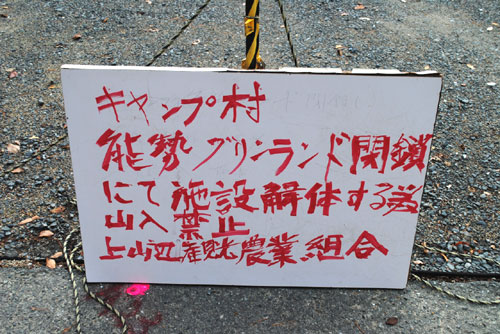 キャンプ村
能勢グリンランド閉鎖
にて施設解体する為
山入禁止
上山辺観光農業組合